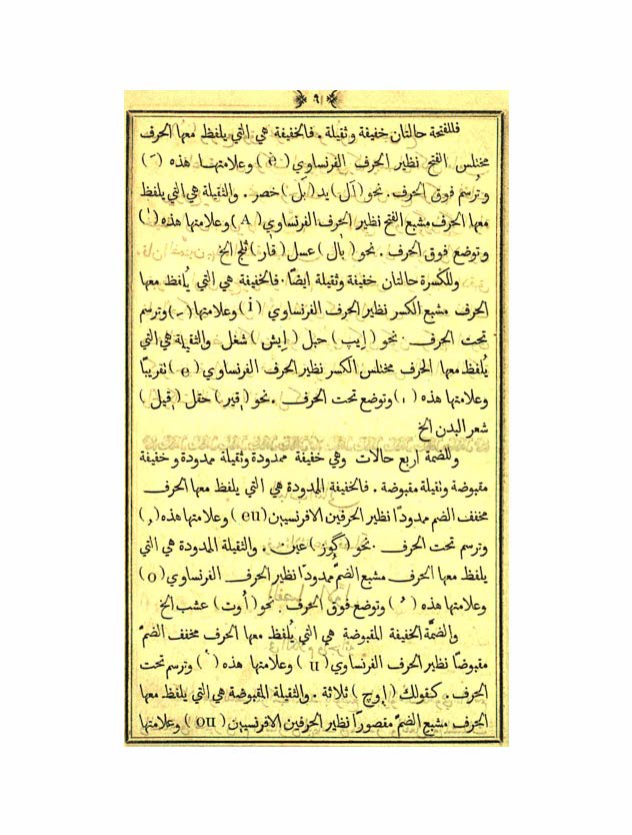 ٩
فللفتحة حالتان خفيفة وثقيلة . فالخفيفة هي التي يلفظ معها الحرف
مختلس الفتح نظير الحرف الفرنساوي ( è ) وعلامتهـا هذه ( -َ )
وتُرسم فوق الحرف . نحو ( اَل ) يد ( بَل ) خصر . والثقيلة هي التي يلفظ
معها الحرف مشبع الفتح نظير الحرف الفرنساوي ( A ) وعلامتها هذه ( ' )
وتوضع فوق الحرف . نحو ( بال ) عسل ( قار ) ثلج الخ
وللكسرة حالتان خفيفة وثقيلة ايضًا . فالخفيفة هي التي يُلفظ معها
الحرف مشبع الكسر نظير الحرف الفرنساوي ( i ) وعلامتها ( ـِ ) وترسم
تحت الحرف . نحو ( اِيپ ) حبل ( اِيش ) شغل والثقيلة هي التي
يُلفظ معها الحرف مختلس الكسر نظير الحرف الفرنساوي ( e ) تقريبًا
وعلامتها هذه ( ، ) وتوضع تحت الحرف . نحو ( قير ) حقل ( قيل )
شعر البدن الخ
وللضمة اربع حالات وهي خفيفة ممدودة وثقيلة ممدودة وخفيفة
مقبوضة وثقيلة مقبوضة . فالخفيفة الممدودة هي التي يلفظ معها الحرف
مخفف الضم ممدودًا نظير الحرفين الافرنسيين ( eu ) وعلامتها هذه ( , )
وترسم تحت الحرف . نحو ( گوز ) عين . والثقيلة الممدودة هي التي
يلفظ معها الحرف مشبع الضمّ ممدودًا نظير الحرف الفرنساوي ( o )
وعلامتها هذه ( ُ ) وتوضع فوق الحرف . نحو ( اُوت ) عشب الخ
والضمَّة الخفيفة المقبوضة هي التي يُلفظ معها الحرف مخفف الضمّ
مقبوضًا نظير الحرف الفرنساوي ( u ) وعلامتها هذه ( ) وترسم تحت
الحرف . كقولك ( اوچ ) ثلاثة . والثقيلة المقبوضة هي التي يلفظ معها
الحرف مشبع الضمّ مقصورًا نظير الحرفين الافرنسيين ( ou ) وعلامتها